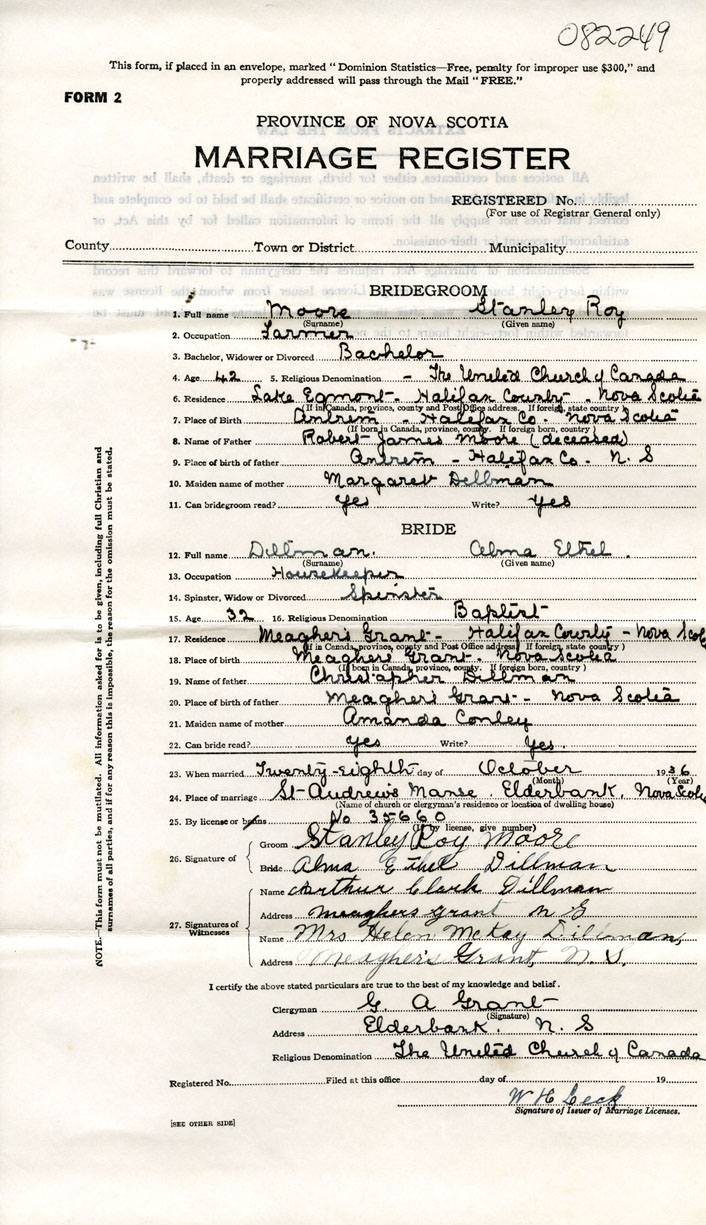 082249
This form, if placed in an envelope, marked "Dominion Statistics—Free, penalty for improper use $300," and
properly addressed will pass through the Mail "FREE."
FORM 2
PROVINCE OF NOVA SCOTIA
MARRIAGE REGISTER
REGISTERED No.
(For use of Registrar General only)
County Town or District Municipality
BRIDEGROOM
1. Full name Moore Stanley Roy
(Surname) (Given name)
2. Occupation Farmer
3. Bachelor, Widower or Divorced Bachelor
4. Age 42 5. Religious Denomination - The United Church of Canada
6. Residence Lake Egmont - Halifax County - Nova Scotia
(If in Canada, province, county and Post Office address. If foreign, state country)
7. Place of Birth Antrim - Halifax Co. Nova Scotia
(If born in Canada, province, county. If foreign born, country)
8. Name of Father Robert James Moore (deceased)
9. Place of birth of father Antrim - Halifax Co. N. S
10. Maiden name of mother Margaret Dillman
11. Can bridegroom read? Yes Write? Yes
BRIDE
12. Full name Dillman. Alma Ethel.
(Surname) (Given name)
13. Occupation Housekeeper
14. Spinster, Widow or Divorced Spinster
15. Age 32 16. Religious Denomination Baptist
17. Residence Meagher's Grant - Halifax County - Nova Sco
(If in Canada, province, county and Post Office address. If foreign, state country)
18. Place of birth Meaghers Grant. Nova Scotia
(If born in Canada, province, county. If foreign born, country)
19. Name of father Christopher Dillman
20. Place of birth of father Meaghers Grant - Nova Scotia
21. Maiden name of mother Amanda Conley
22. Can bride read? Yes Write? Yes.
23. When married Twenty-eighth day of October 1936
(Month) (Year)
24. Place of marriage St-Andrew's Manse, Elderbank, Nova Scot
(Name of church or clergyman's residence or location of dwelling house)
25. By license or banns No 35660
(If by license, give number)
26. Signature of Groom Stanley Roy Moore
Bride Alma Ethel Dillman
27. Signatures of Witnesses Name Arthur Clark Dillman
Address Meaghers grant N S
Name Mrs Helen McKay Dillman,
Address Meagher's Grant, N. S.
I certify the above stated particulars are true to the best of my knowledge and belief.
Clergyman G. A Grant
(Signature)
Address Elderbank. N. S
Religious Denomination The United Church of Canada
Registered No. Filed at this office day of 19
W H
Signature of Issuer of Marriage Licenses.
[SEE OTHER SIDE]
NOTE.—This form must not be mutilated. All information asked for is to be given, including full Christian and
surnames of all parties, and if for any reason this is impossible, the reason for the omission must be stated.